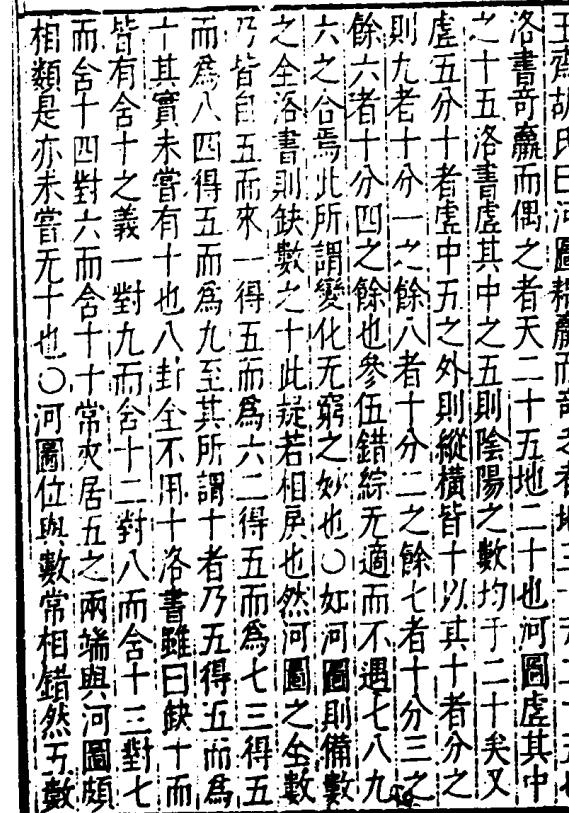 玉齋胡氏曰河圖耦贏而奇乏者地三十天二十五也
洛書奇贏而偶乏者天二十五地二十也河圖虛其中
之十五洛書虛其中之五則陰陽之數均于二十矣又
虛五分十者虛中五之外則縱橫皆十以其十者分之
則九者十分一之餘八者十分二之餘七者十分三之
餘六者十分四之餘也參伍錯綜无適而不遇七八九
六之合焉此所謂變化无窮之妙也○如河圖則備數
之全洛書則缺數之十此疑若相戾也然河圖之全數
乃皆自五而來一得五而為六二得五而為七三得五
而為八四得五而為九至其所謂十者乃五得五而為
十其實未嘗有十也八卦全不用十洛書雖曰缺十而
皆有含十之義一對九而含十二對八而含十三對七
而含十四對六而含十十常夾居五之兩端與河圖頗
相類是亦未嘗无十也○河圖位與數常相錯然五數